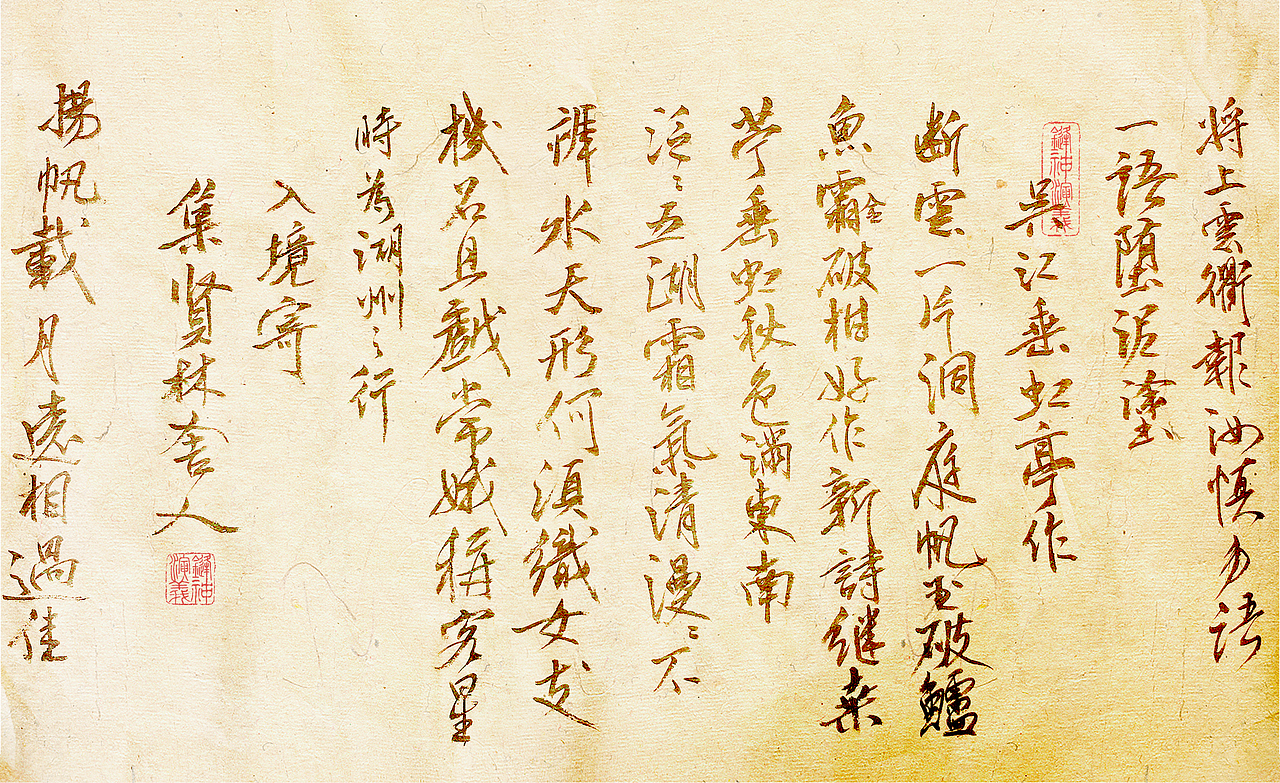 将上雲衢報汝慎勿語
一語堕泥塗
吴江垂虹亭作
断雲一片洞庭帆玉破鱸
魚霜金破柑好作新詩継桑
苧垂虹秋色满東南
泛〻五湖霜氣清漫〻不
辨水天形何須織女支
機石且戲常娥稱客星
時為湖州之行
入境寄
集賢林舍人
揚帆載月遠相過佳